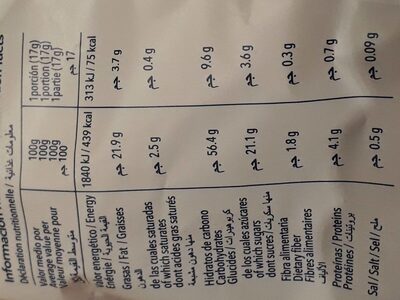 Información n
on facts
Déclaration nutritionnelle / معلومات غذائية
Valor medio por 100g 1 porción (17g)
Average value per 100g 1 portion (17g)
Valeur moyenne pour 100g 1 partie (17g)
جم 100 جم 17
Valor energético / Energy 1840 kJ / 439 kcal 313 kJ / 75 kcal
Énergie /
Grasas / Fat / Graisses 21.9 g 3.7 g
الدهون جم جم
de las cuales saturadas 2.5 g 0.4 g
of which saturates جم جم
dont acides gras saturés
Hidratos de carbono 56.4 g 9.6 g
Carbohydrates جم جم
Glucides / كربوهيدرات
de los cuales azúcares 21.1 g 3.6 g
of which sugars جم جم
dont sucres /
Fibra alimentaria 1.8 g 0.3 g
Dietary fiber جم جم
Fibres alimentaires
الألياف
Proteínas / Proteins 4.1 g 0.7 g
Protéines / بروتينات جم جم
Sal / Salt / Sel / ملح 0.5 g 0.09 g
جم جم